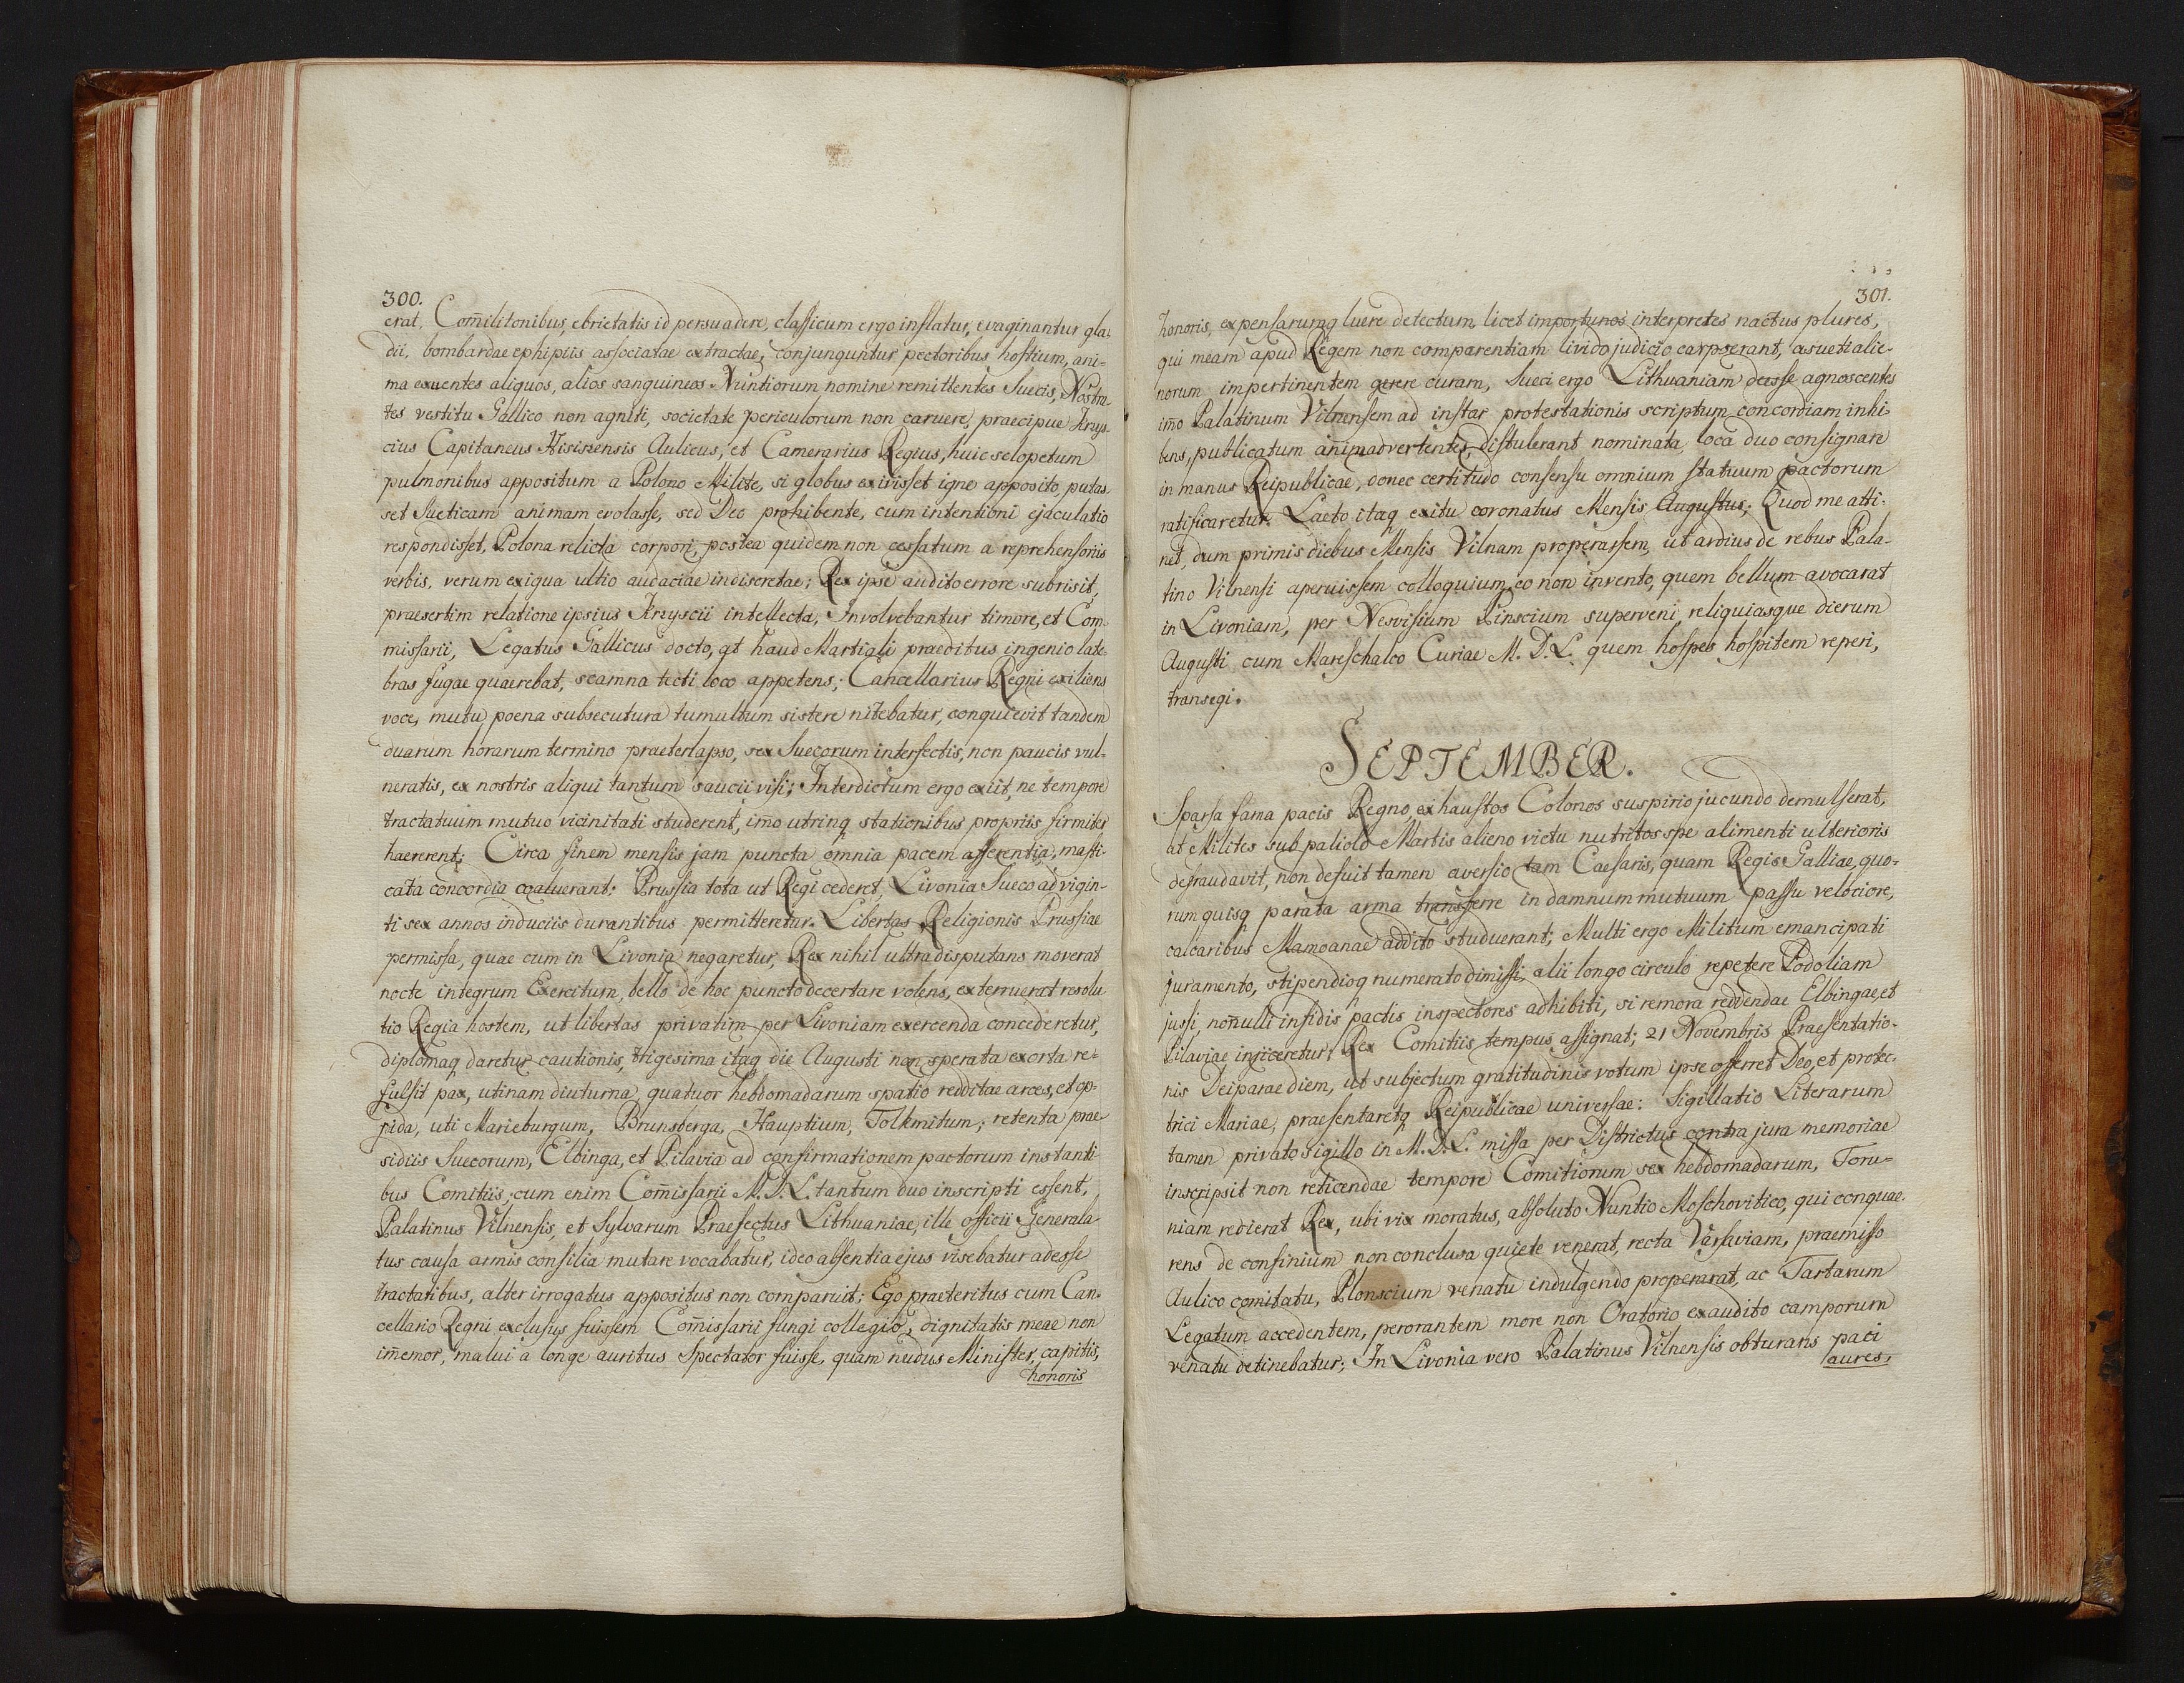 300.
erat, Com̄ilitonibus, ebrietatis id persuadere, classicum ergo inflatur, evaginantur gla-
dii, bombardae ephipiis associatae extractae, conjunguntur pectoribus hostium, ani-
ma exuentes aliquos, alios sanguineos Nuntiorum nomine remittentes Suecis, Nostra
tes vestitu Gallico non agniti, societate periculorum non caruere, praecipue Krys
cius Capitaneus Aulicus, et Camerarius Regius, huic sclopetum
pulmonibus appositum a Polono Milite, si globus exivisset igne apposito, putas
set Sueticam animam evolasse, sed Deo prohibente, cum intentioni ejaculatio
respondisset, Polona relicta corpori, postea quidem non cessatum a reprehensoriis
verbis, verum exigua ultio audaciae indiscretae; Rex ipse audito errore subrisit,
praesertim relatione ipsius Kryscii intellecta, Involvebantur timore, et Com-
missarii, Legatus Gallicus docto, qt haud Martiali praeditus ingenio late
bras fugae quaerebat, scamna tecti loco appetens; Cancellarius Regni exiliens
voce, mutu, poena subsecutura tumultum sistere nitebatur, conquievit tandem
duarum horarum termino praeterlapso, sex Suecorum interfectis, non paucis vul-
neratis, ex nostris aliqui tantum saucii visi; Interdictum ergo exiit, ne tempore
tractatuum mutuo vicinitati studerent, im̄o utrinq stationibus propriis firmiter
haererent; Circa finem mensis jam puncta omnia pacem afferentia, masti-
cata concordia coaluerant: Prussia tota ut Regi cederet, Livonia Sueco ad vigin-
ti sex annos induciis durantibus permitteretur. Libertas Religionis Prussiae
permissa, quae cum in Livonia negaretur, Rex nihil ultra disputans moverat
nocte integrum Exercitum, bello de hoc puncto decertare volens, exterruerat resolu
tio Regia hostem, ut libertas privatim per Livoniam exercenda concederetur,
diplomaq daretur cautionis, trigesima itaq die Augusti non sperata exorta re-
fulsit pax, utinam diuturna, quatuor hebdomadarum spatio redditae arces, et op-
pida, uti Marieburgum, Brunsberga, Hauptium, Tolkmitum; retenta prae
sidiis Suecorum, Elbinga, et Pilavia ad confirmationem pactorum instanti
bus Comitiis, cum enim Com̄issarii M. D. L. tantum duo inscripti essent,
Palatinus Vilnensis, et Sylvarum Praefectus Lithuaniae, ille officii Generala
tus causa armis consilia mutare vocabatur, ideo absentia ejus visebatur adesse
tractatibus, alter irrogatus appositus non comparuit; Ego praeteritus cum Can-
cellario Regni exclusus fuissem Com̄issarii fungi collegio, dignitatis meae non
im̄emor, malui a longe auritus Spectator fuisse, quam nudus Minister, capitis,
honoris
301.
honoris, expensarumq luere detectum, licet importunos interpretes nactus plures,
qui meam apud Regem non comparentiam livido judicio carpserant, asueti alie-
norum impertinentem gerere curam, Sueci ergo Lithuaniam deesse agnoscentes
im̄o Palatinum Vilnensem ad instar protestationis scriptum concordiam inhi-
bens, publicatum anim̄advertentes, distulerant nominata loca duo consignare
in manus Reipublicae, donec certitudo consensu omnium statuum pactorum
ratificaretur. Laeto itaq exitu coronatus Mensis Augustus; Quod me atti-
net, dum primis diebus Mensis Vilnam properassem, ut ardius de rebus Pala-
tino Vilnensi aperuissem colloquium, eo non invento, quem bellum avocarat
in Livoniam, per Nesvisium Pinscium superveni, reliquiasque dierum
Augusti cum Mareschalco Curiae M. D. L. quem hospes hospitem reperi,
transegi.
SEPTEMBER.
Sparsa fama pacis Regno, exhaustos Colonos suspirio jucundo demulserat,
at Milites sub paliolo Martis alieno victu nutritos spe alimenti ulterioris
defraudavit, non defuit tamen aversio tam Caesaris, quam Regis Galliae, quo-
rum quisq parata arma transferre in damnum mutuum passu velociore,
calcaribus Mamoanae addito studuerant; Multi ergo Militum emancipati
juramento, stipendioq numerato dimissi, alii longo circulo repetere Podoliam
jussi, non̄ulli infidis pactis inspectores adhibiti, si remora reddendae Elbingae, et
Pilaviae injiceretur, Rex Comitiis tempus assignat; 21 Novembris Praesentatio-
nis Deiparae diem, ut subjectum gratitudinis votum ipse offerret Deo, et protec-
trici Mariae, praesentaretq Reipublicae universae: Sigillatio Literarum
tamen privato sigillo in M. D. L. missa per Districtus contra jura memoriae
inscripsit non reticendae tempore Comitiorum sex hebdomadarum, Toru-
niam redierat Rex, ubi vix moratus, absoluto Nuntio Moschovitico, qui conquae-
rens de confinium non conclusa quiete venerat, recta Varsaviam, praemisso
Aulico comitatu, Plonscium venatu indulgendo properarat, ac Tartarum
Legatum accedentem, perorantem more non Oratorio exaudito camporum
venatu detinebatur; In Livonia vero Palatinus Vilnensis obturans paci
aures,